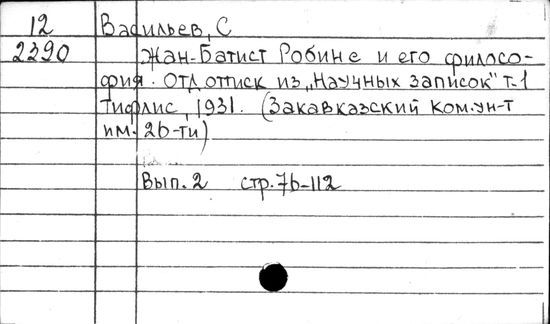 12 Васильев, С
2390 Жан-Батист Робине и его филосо-
фия. Отд оттиск из „Научных записок" т-1
Тифлис, 1931. (Закавказский Ком.ун-т
им. 26-ти)
Вып. 2 стр. 76-112